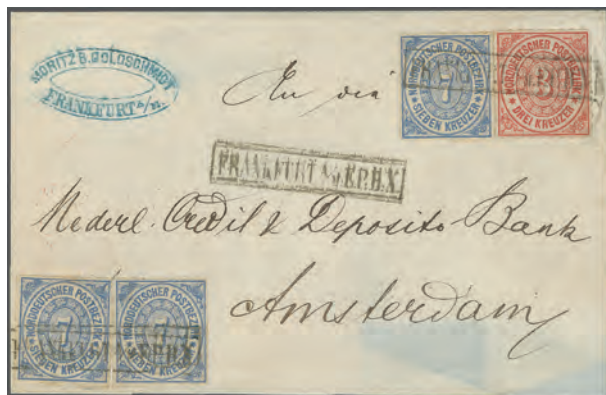 MORITZ B. GOLDSCHMIDT
FRANKFURT a/M.
An die
NORDDEUTSCHER POSTBEZIRK
7
SIEBEN KREUZER
NORDDEUTSCHER POSTBEZIRK
3
DREI KREUZER
FRANKFURT
Nederl. Credit & Deposito-Bank
Amsterdam
NORDDEUTSCHER POSTBEZIRK
7
SIEBEN KREUZER
NORDDEUTSCHER POSTBEZIRK
7
SIEBEN KREUZER